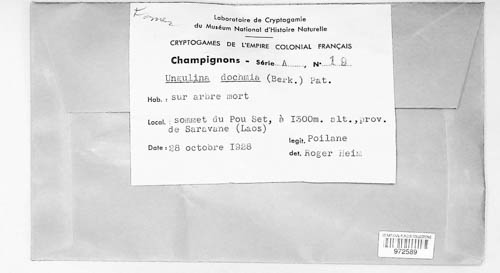 Fomes
Laboratoire de Cryptogamie
du Muséum National d'Histoire Naturelle
CRYPTOGAMES DE L'EMPIRE COLONIAL FRANÇAIS
Champignons - Série A, N° 19
Ungulina dochmia (Berk.) Pat.
Hab.: sur arbre mort
Local. sommet du Pou Set, à 1300m. alt., prov.
de Saravane (Laos)
legit. Poilane
Date: 28 octobre 1928
det. Roger Heim
972589